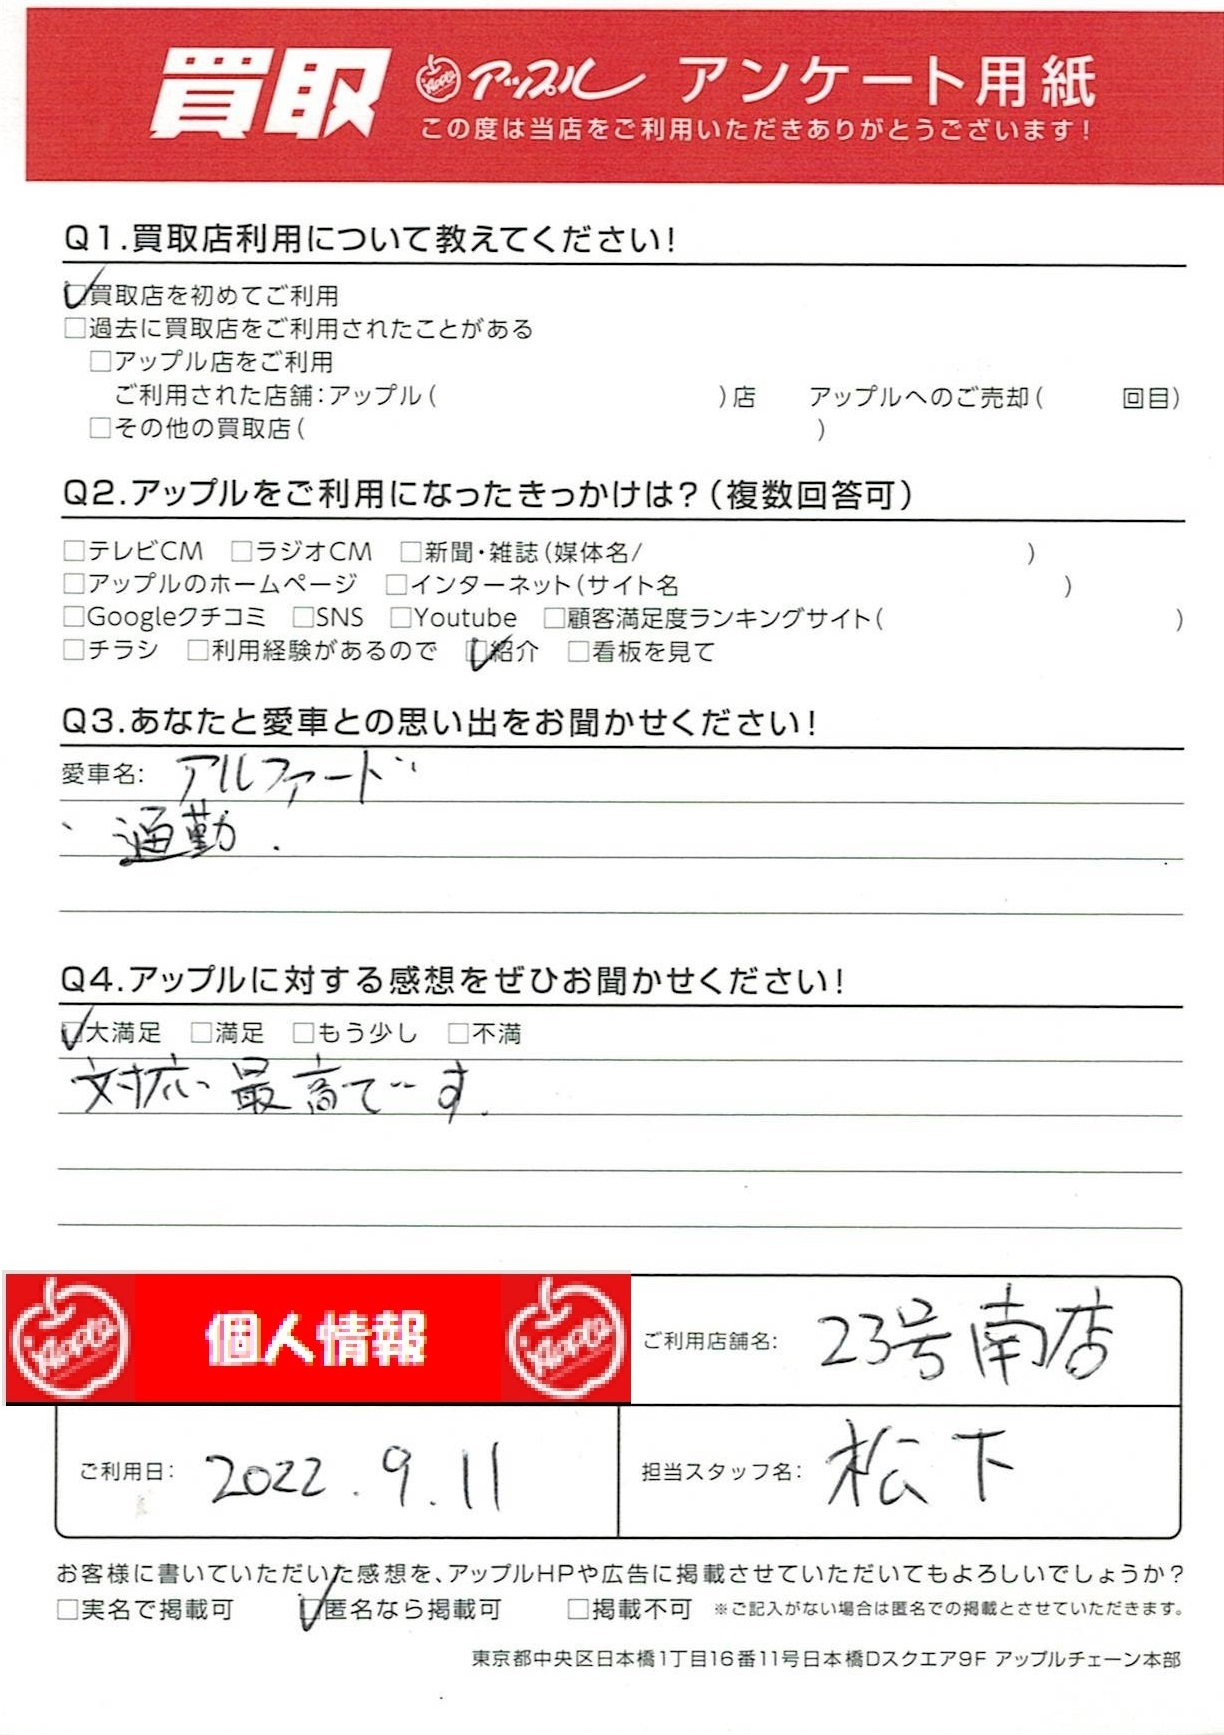 買取 Apple アップル アンケート用紙
この度は当店をご利用いただきありがとうございます!
Q1.買取店利用について教えてください!
☑買取店を初めてご利用
□過去に買取店をご利用されたことがある
□アップル店をご利用
ご利用された店舗:アップル( )店 アップルへのご売却( 回目)
□その他の買取店( )
Q2.アップルをご利用になったきっかけは?(複数回答可)
□テレビCM □ラジオCM □新聞・雑誌(媒体名/ )
□アップルのホームページ □インターネット(サイト名 )
□Googleクチコミ □SNS □Youtube □顧客満足度ランキングサイト( )
□チラシ □利用経験があるので ☑紹介 □看板を見て
Q3.あなたと愛車との思い出をお聞かせください!
愛車名: アルファード
、通勤.
Q4.アップルに対する感想をぜひお聞かせください!
☑大満足 □満足 □もう少し □不満
対応い最高です.
Apple 個人情報 Apple ご利用店舗名: 23号南店
ご利用日: 2022.9.11 担当スタッフ名: 松下
お客様に書いていただいた感想を、アップルHPや広告に掲載させていただいてもよろしいでしょうか?
□実名で掲載可 ☑匿名なら掲載可 □掲載不可 ※ご記入がない場合は匿名での掲載とさせていただきます。
東京都中央区日本橋1丁目16番11号日本橋Dスクエア9F アップルチェーン本部